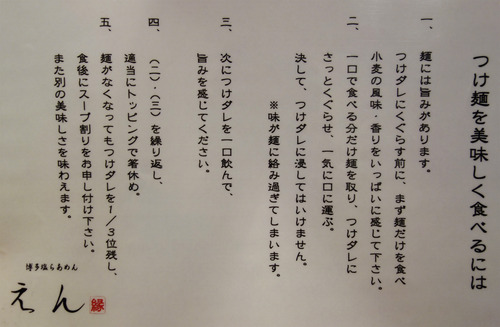 つけ麺を美味しく食べるには
一、麺には旨みがあります。
つけダレにくぐらす前に、まず麺だけを食べ
小麦の風味・香りをいっぱいに感じて下さい。
二、一口で食べる分だけ麺を取り、つけダレに
さっとくぐらせ、一気に口に運ぶ。
決して、つけダレに浸してはいけません。
※味が麺に絡み過ぎてしまいます。
三、次につけダレを一口飲んで、
旨みを感じてください。
四、(二)・(三)を繰り返し、
適当にトッピングで箸休め。
五、麺がなくなってもつけダレを1/3位残し、
食後にスープ割りをお申し付け下さい。
また別の美味しさを味わえます。
博多塩らあめん
えん
縁